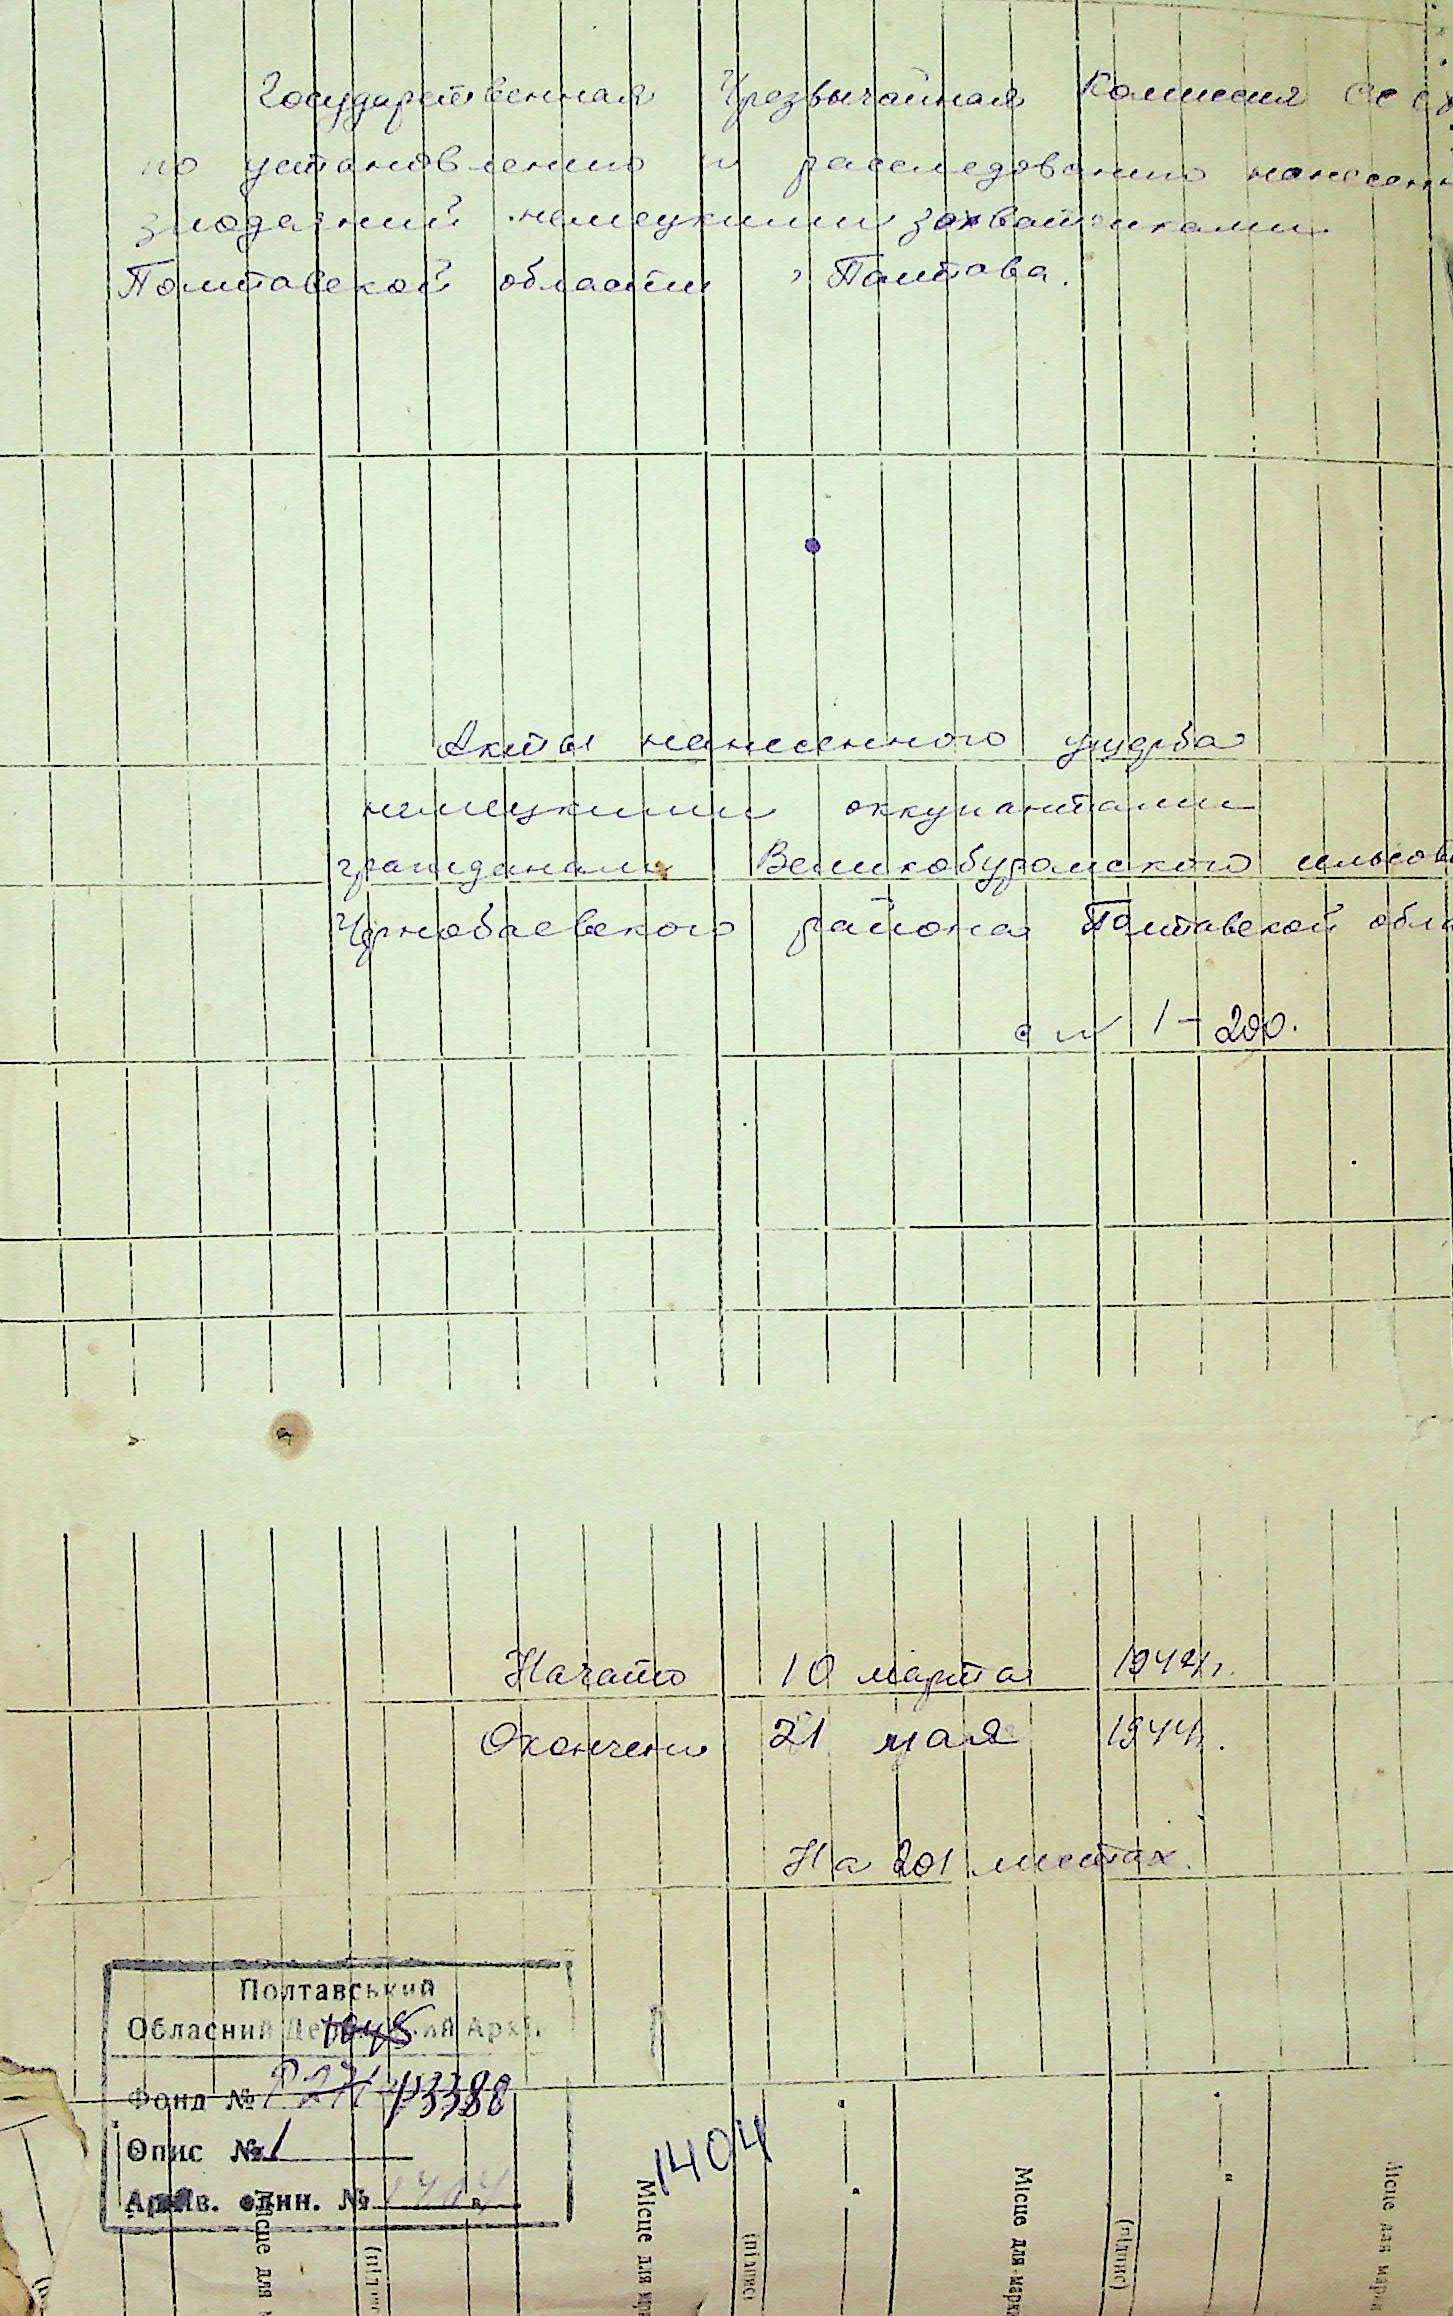 Государственная Чрезвычайная Комиссия СССР
по установлению и расследованию нанесенн
злодеяний немецкими захватчиками
Полтавской области г Полтава.
Акты нанесенного ущерба
немецкими оккупантами
гражданам Великобуромского сельсове
Чернобаевского района Полтавской обла
с № 1-200.
Начато 10 марта 1944г.
Окончено 21 мая 1944г.
На 201 листах.
Полтавський
Обласний Державний Архів
Фонд № Р3388
Опис № 1
Архів. один. № 1404
1404
Місце для
Місце для
Місце для марк
Місце для марк
(підпис)
(підпис)